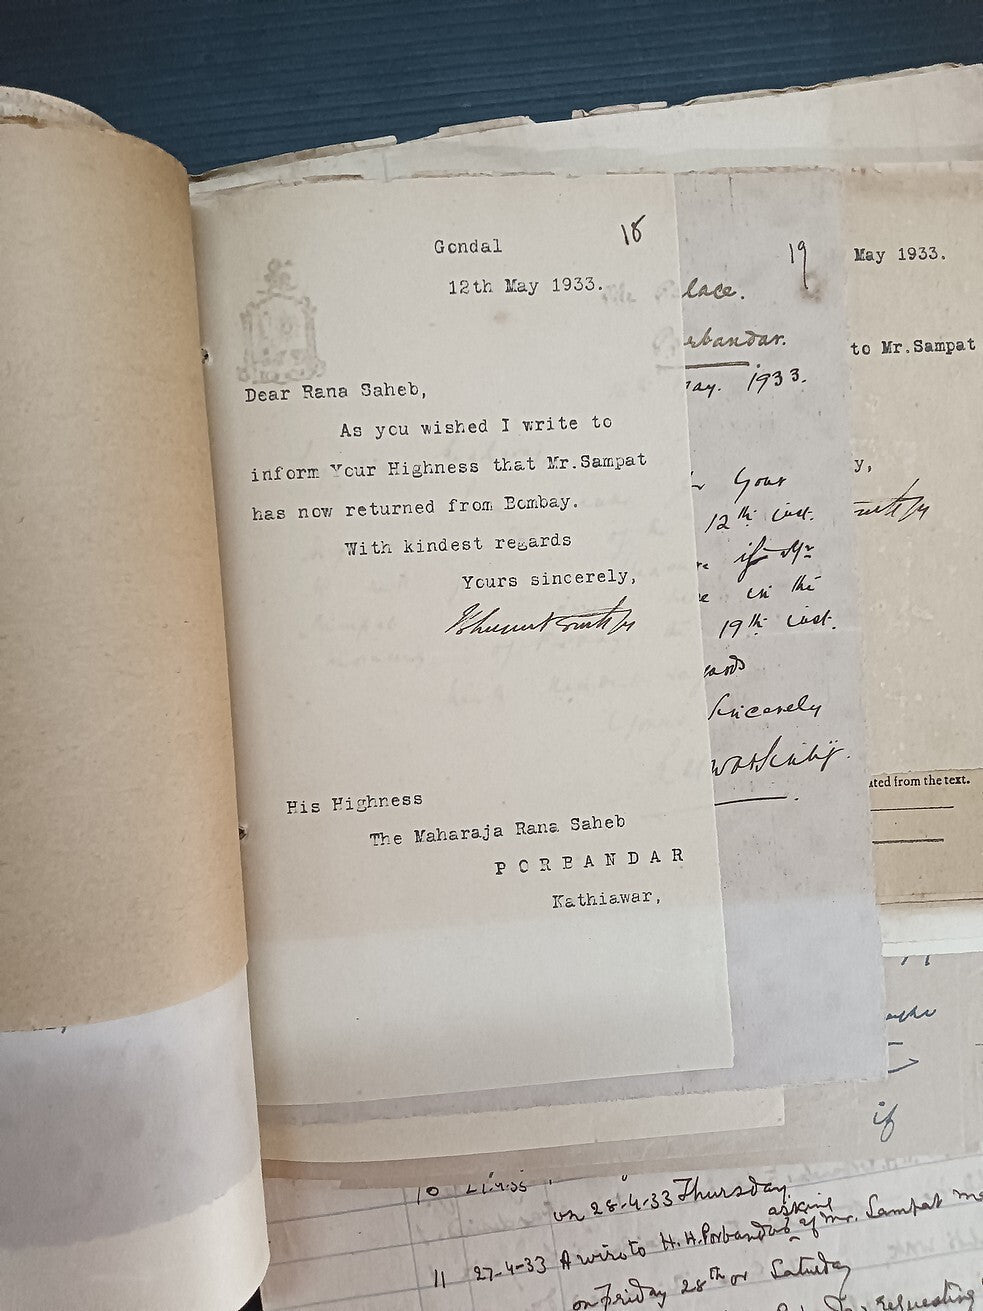 18
Gondal
12th May 1933.
Dear Rana Saheb,
As you wished I write to
inform Your Highness that Mr.Sampat
has now returned from Bombay.
With kindest regards
Yours sincerely,
His Highness
The Maharaja Rana Saheb
PORBANDAR
Kathiawar,
19
lace.
rbandar.
ay. 1933.
Your
12th inst.
if Mr
in the
19th inst.
ards
Sincerely
May 1933.
to Mr.Sampat
y,
ated from the text.
if
10
on 28-4-33 Thursday
asking
11 27-4-33 A wire to H.H. Porbandar if Mr. Sampat
on Friday 28th or Saturday
requesting